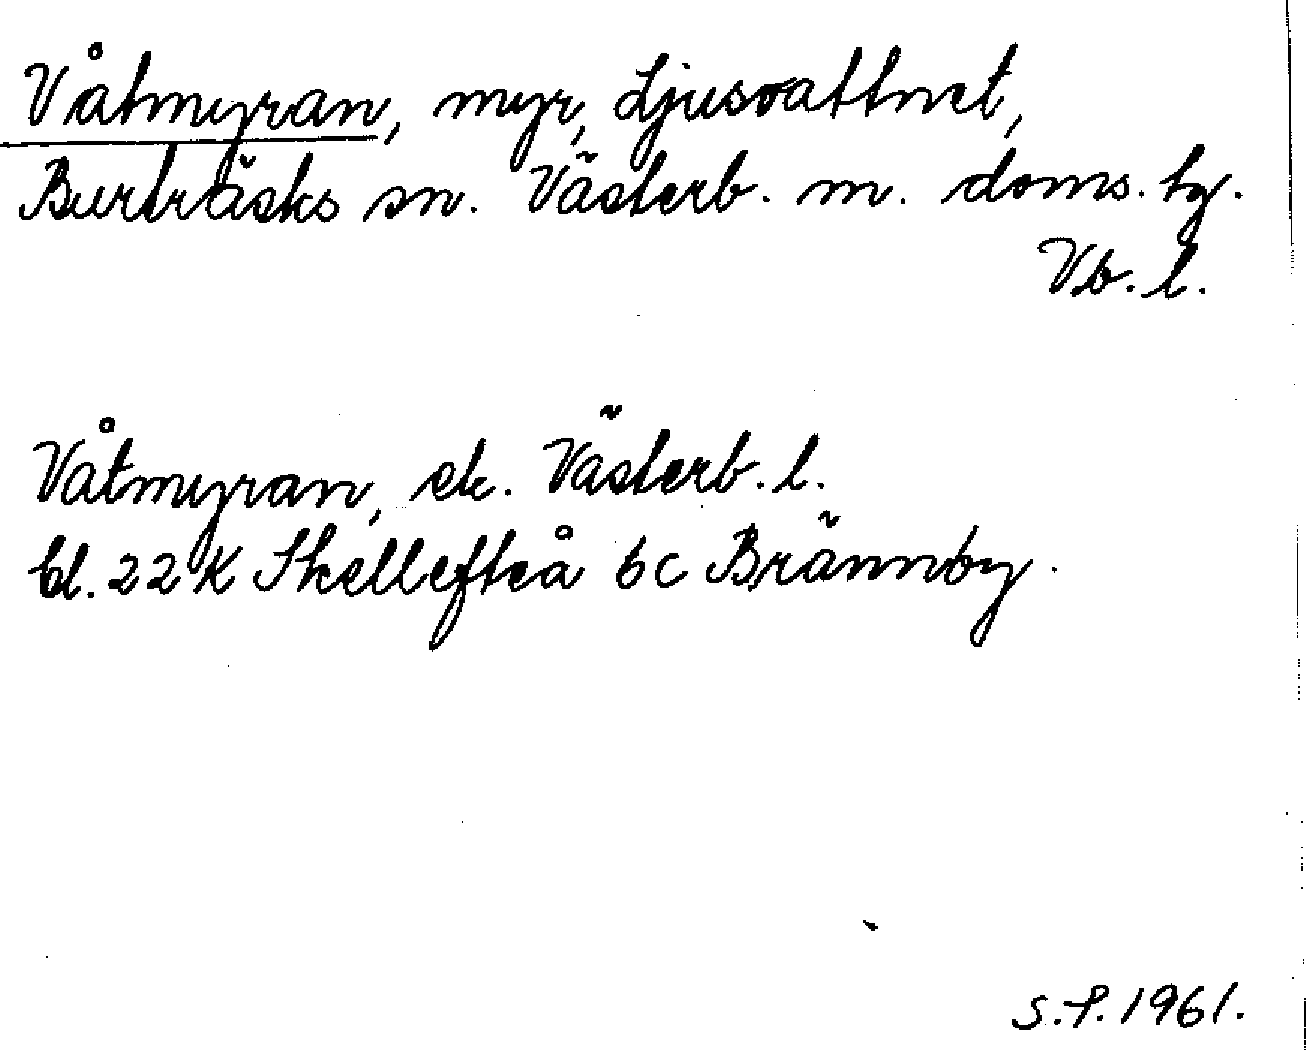 Våtmyran, myr, Ljusvattnet,
Burträsks sn. Västerb. m. doms. tg.
Vb. l.
Våtmyran, ek. Västerb. l.
bl. 22 K Skellefteå 6c Brännby.
S.P. 1961.